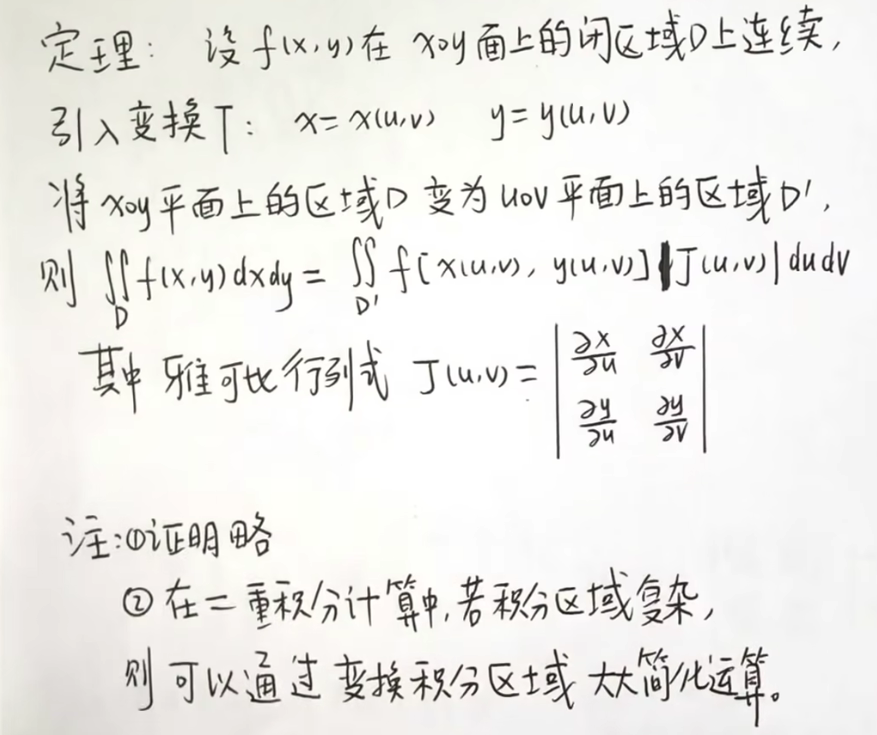 定理： 设 f(x,y)在 xoy面上的闭区域D上连续，
引入变换T： x=x(u,v) y=y(u,v)
将xoy平面上的区域D 变为uov平面上的区域D'，
则 ∬_D f(x,y)dxdy = ∬_D' f[x(u,v), y(u,v)] |J(u,v)| dudv
其中 雅可比行列式 J(u,v)= | ∂x/∂u ∂x/∂v |
| ∂y/∂u ∂y/∂v |
注:①证明略
②在二重积分计算中,若积分区域复杂，
则可以通过变换积分区域大大简化运算。